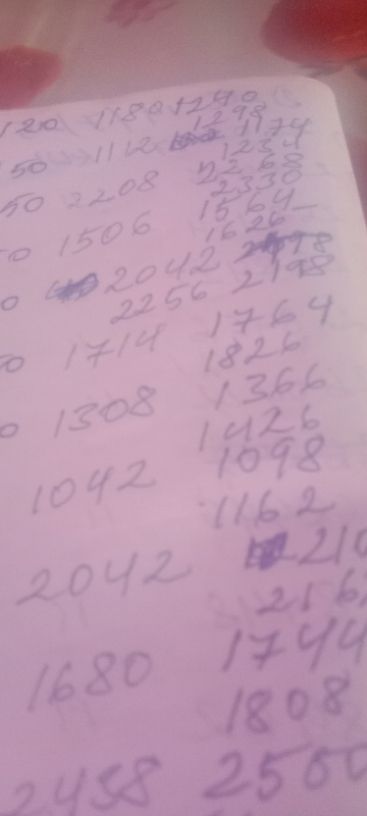 120 1180 1240
1298
50 1112 1174
1234
50 2208 2268
2330
1506 1564
1626
2042
2256 2198
50 1714 1764
1826
1308 1366
1426
1042 1098
1162
2042 210
216
1680 1744
1808
2458 250